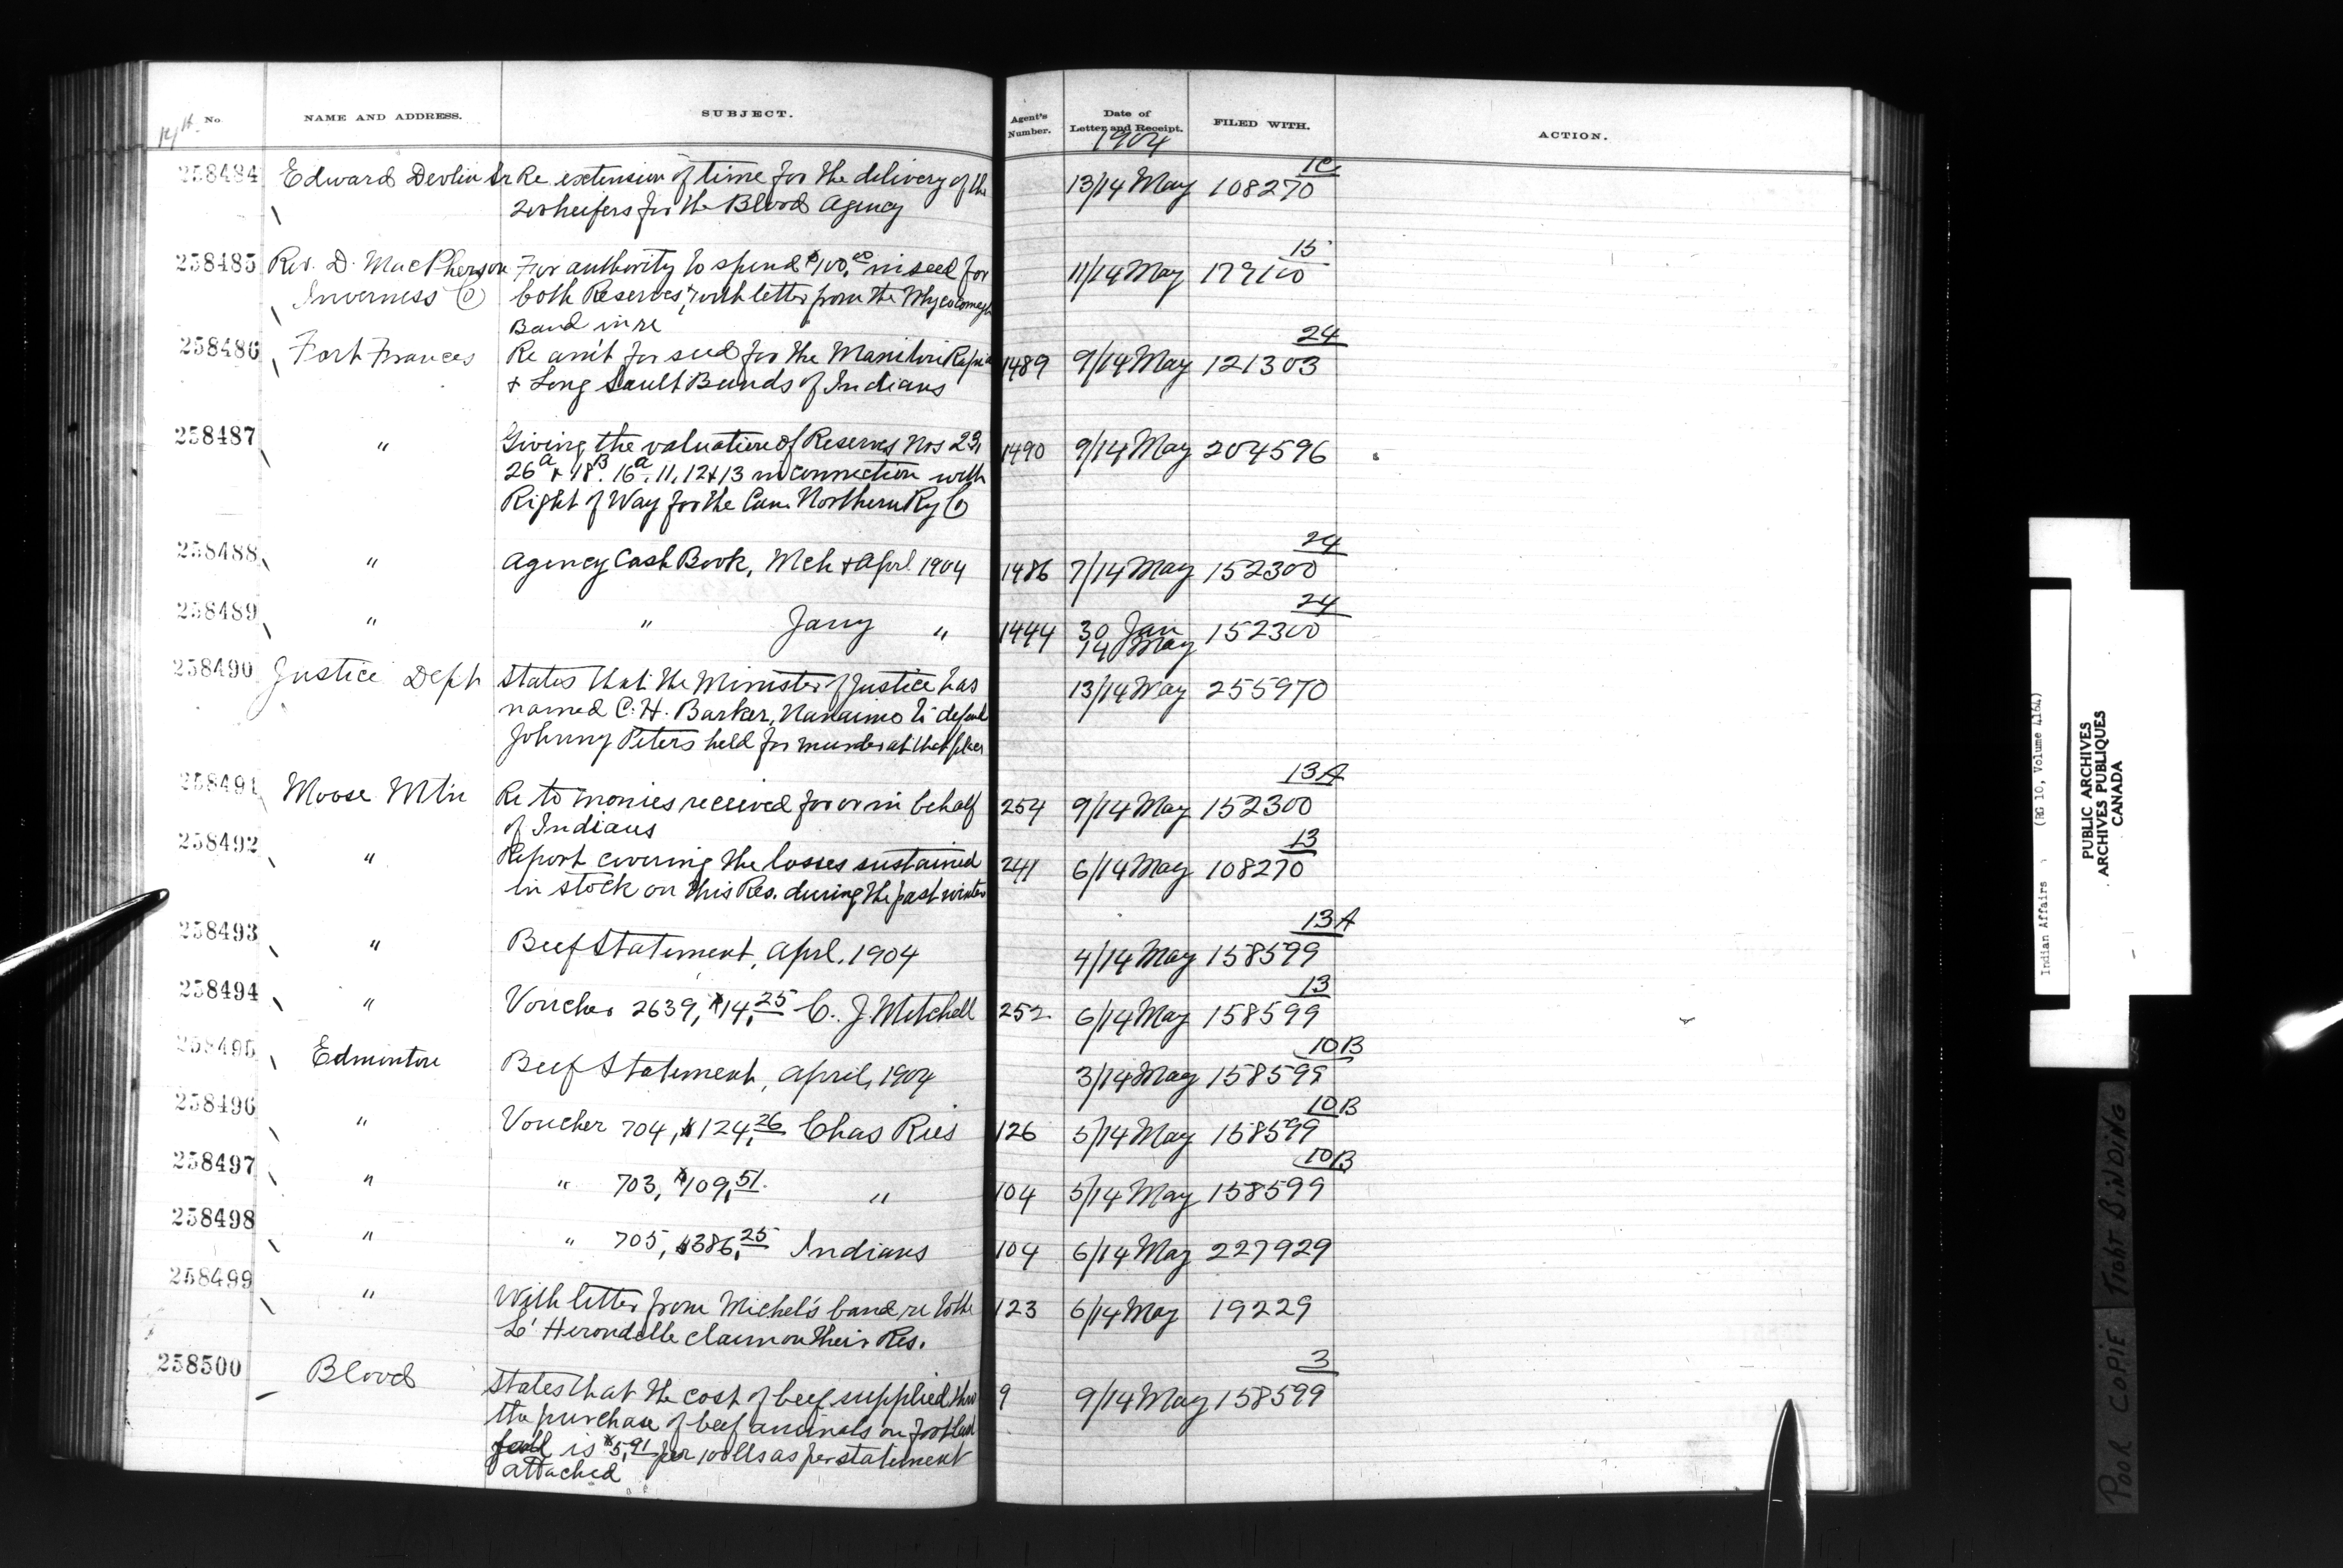 No. NAME AND ADDRESS. SUBJECT. Agent's Number. Date of Letter and Receipt. FILED WITH. ACTION.
14th 1904
258484 Edward Devlin Sr Re extension of time for the delivery of the 13/14 May 108270 1C
200 heifers for the Blood Agency
258485 Rev. D. MacPherson For authority to spend $100.00 in seed for 11/14 May 179100 15
Inverness Co both Reserves, with letter from the Whycocomagh
Band in re
258486 Fort Frances Re am't for seed for the Manitou Rapids 1489 9/14 May 121303 24
& Long Sault Bands of Indians
258487 " Giving the valuation of Reserves Nos 23, 1490 9/14 May 204596
26A & 18B. 16A. 11, 12 & 13 in connection with
Right of Way for the Can. Northern Ry Co
258488 " Agency Cash Book, Mch & Aprl 1904 1486 7/14 May 152300 24
258489 " " Jany " 1444 30 Jan 14 May 152300 24
258490 Justice Dept States that the Minister of Justice has 13/14 May 255970
named C. H. Barker, Nanaimo to defend
Johnny Peters held for murder at that place
258491 Moose Mtn Re to monies received for or in behalf 254 9/14 May 152300 13A
of Indians
258492 " Report covering the losses sustained 241 6/14 May 108270 13
in stock on this Res. during the past winter
258493 " Beef Statement, Aprl, 1904 4/14 May 158599 13A
258494 " Voucher 2639, $14.25 C. J. Mitchell 252 6/14 May 158599 13
258495 Edmonton Beef Statement, April, 1904 3/14 May 158599 10B
258496 " Voucher 704, $124.26 Chas Ries 126 5/14 May 158599 10B
258497 " " 703, $109.51 " 104 5/14 May 158599 10B
258498 " " 705, $386.25 Indians 104 6/14 May 227929
258499 " With letter from Michel's band re to the 123 6/14 May 19229
L'Herondelle claim on their Res.
258500 Blood States that the cost of beef supplied thro 9 9/14 May 158599 3
the purchase of beef animals on foot last
is $5.91 per 100 lbs as per statement
attached
Indian Affairs (RG 10, Volume 4164)
PUBLIC ARCHIVES
ARCHIVES PUBLIQUES
CANADA
POOR COPIE TIGHT BINDING